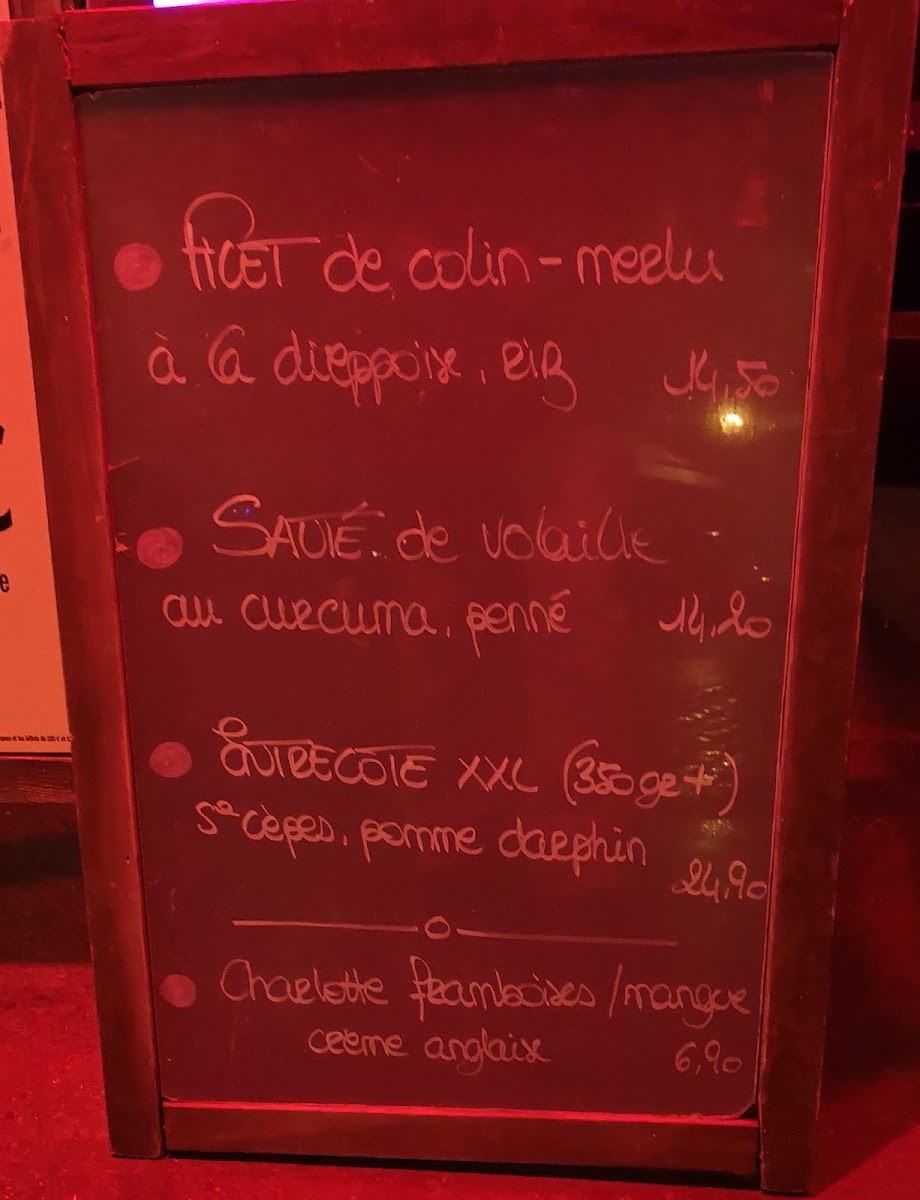 FILET de colin-merlu
à la dieppoise, riz 14,50
SAUTÉ de volaille
au curcuma, penné 14,20
ENTRECOTE XXL (350gr+)
Sce cèpes, pomme daephin
24,90
Charlotte framboises/mangue
crème anglaise 6,90